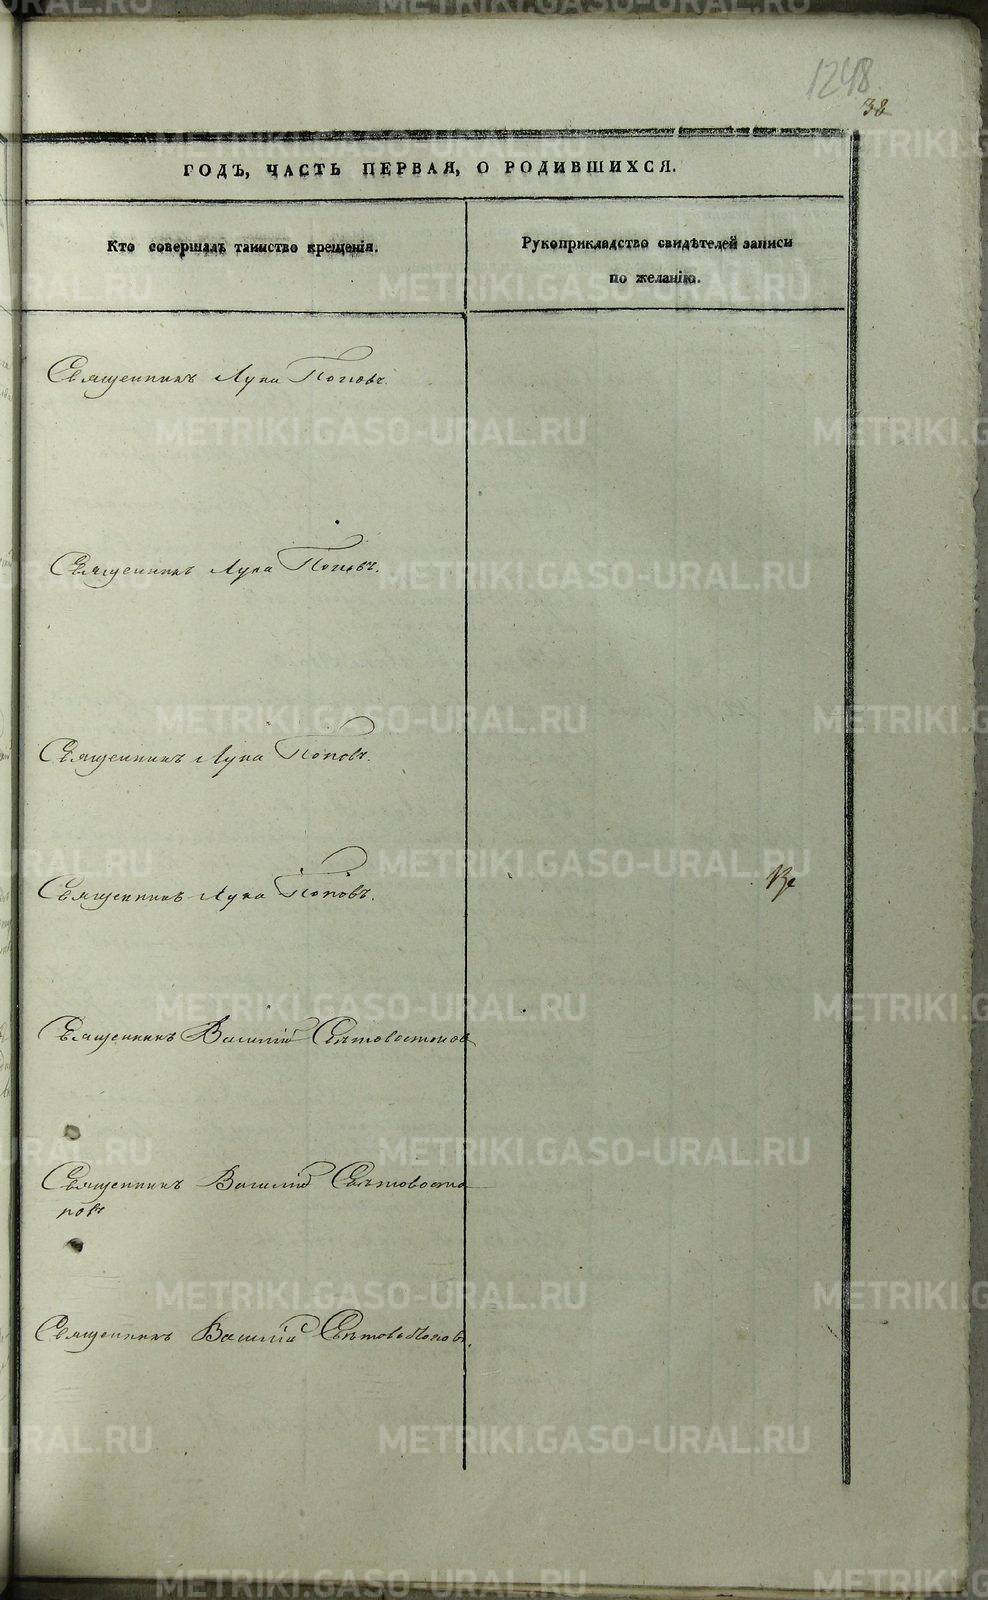 1248
38
ГОДЪ, ЧАСТЬ ПЕРВАЯ, О РОДИВШИХСЯ.
Кто совершалъ таинство крещенія.
Рукоприкладство свидѣтелей записи
по желанію.
Священникъ Лука Поповъ.
Священникъ Лука Поповъ.
Священникъ Лука Поповъ.
Священникъ Лука Поповъ.
Священникъ Василій
Священникъ Василій
повъ
Священникъ Василій
METRIKI.GASO-URAL.RU